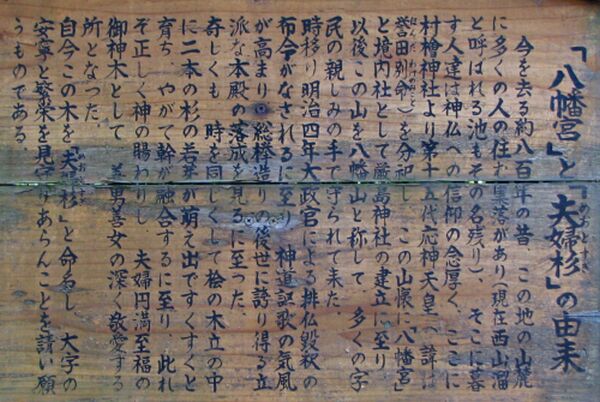 「八幡宮」と「夫婦杉」の由来
めおとすぎ
今を去る約八百年の昔 この地の山麓
に多くの人の住む集落があり(現在西山溜
と呼ばれる池もその名残り)、そこに暮
す人達は神仏への信仰の念厚く、ここに
村檜神社より第十五代応神天皇(諱は
誉田別命)を分祀し この山懐に「八幡宮」
と境内社として厳島神社の建立に至り
以後この山を八幡山と称して 多くの字
民の親しみの手で守られて来た。
時移り明治四年大政官による排仏毀釈の
布令がなされるに至り 神道謳歌の気風
が高まり 総欅造りの後世に誇り得る立
派な本殿の落成を見るに至った。
奇しくも 時を同じくして桧の木立の中
に二本の杉の若芽が萌え出ですくすくと
育ち、やがて幹が融合するに至り、此れ
ぞ正しく神の賜わりし 夫婦円満至福の
御神木として 善男善女の深く敬愛する
所となった。
自今この木を「夫婦杉」と命名し、大字の
めおとすぎ
安寧と繁栄を見守りあらんことを請い願
うものである。